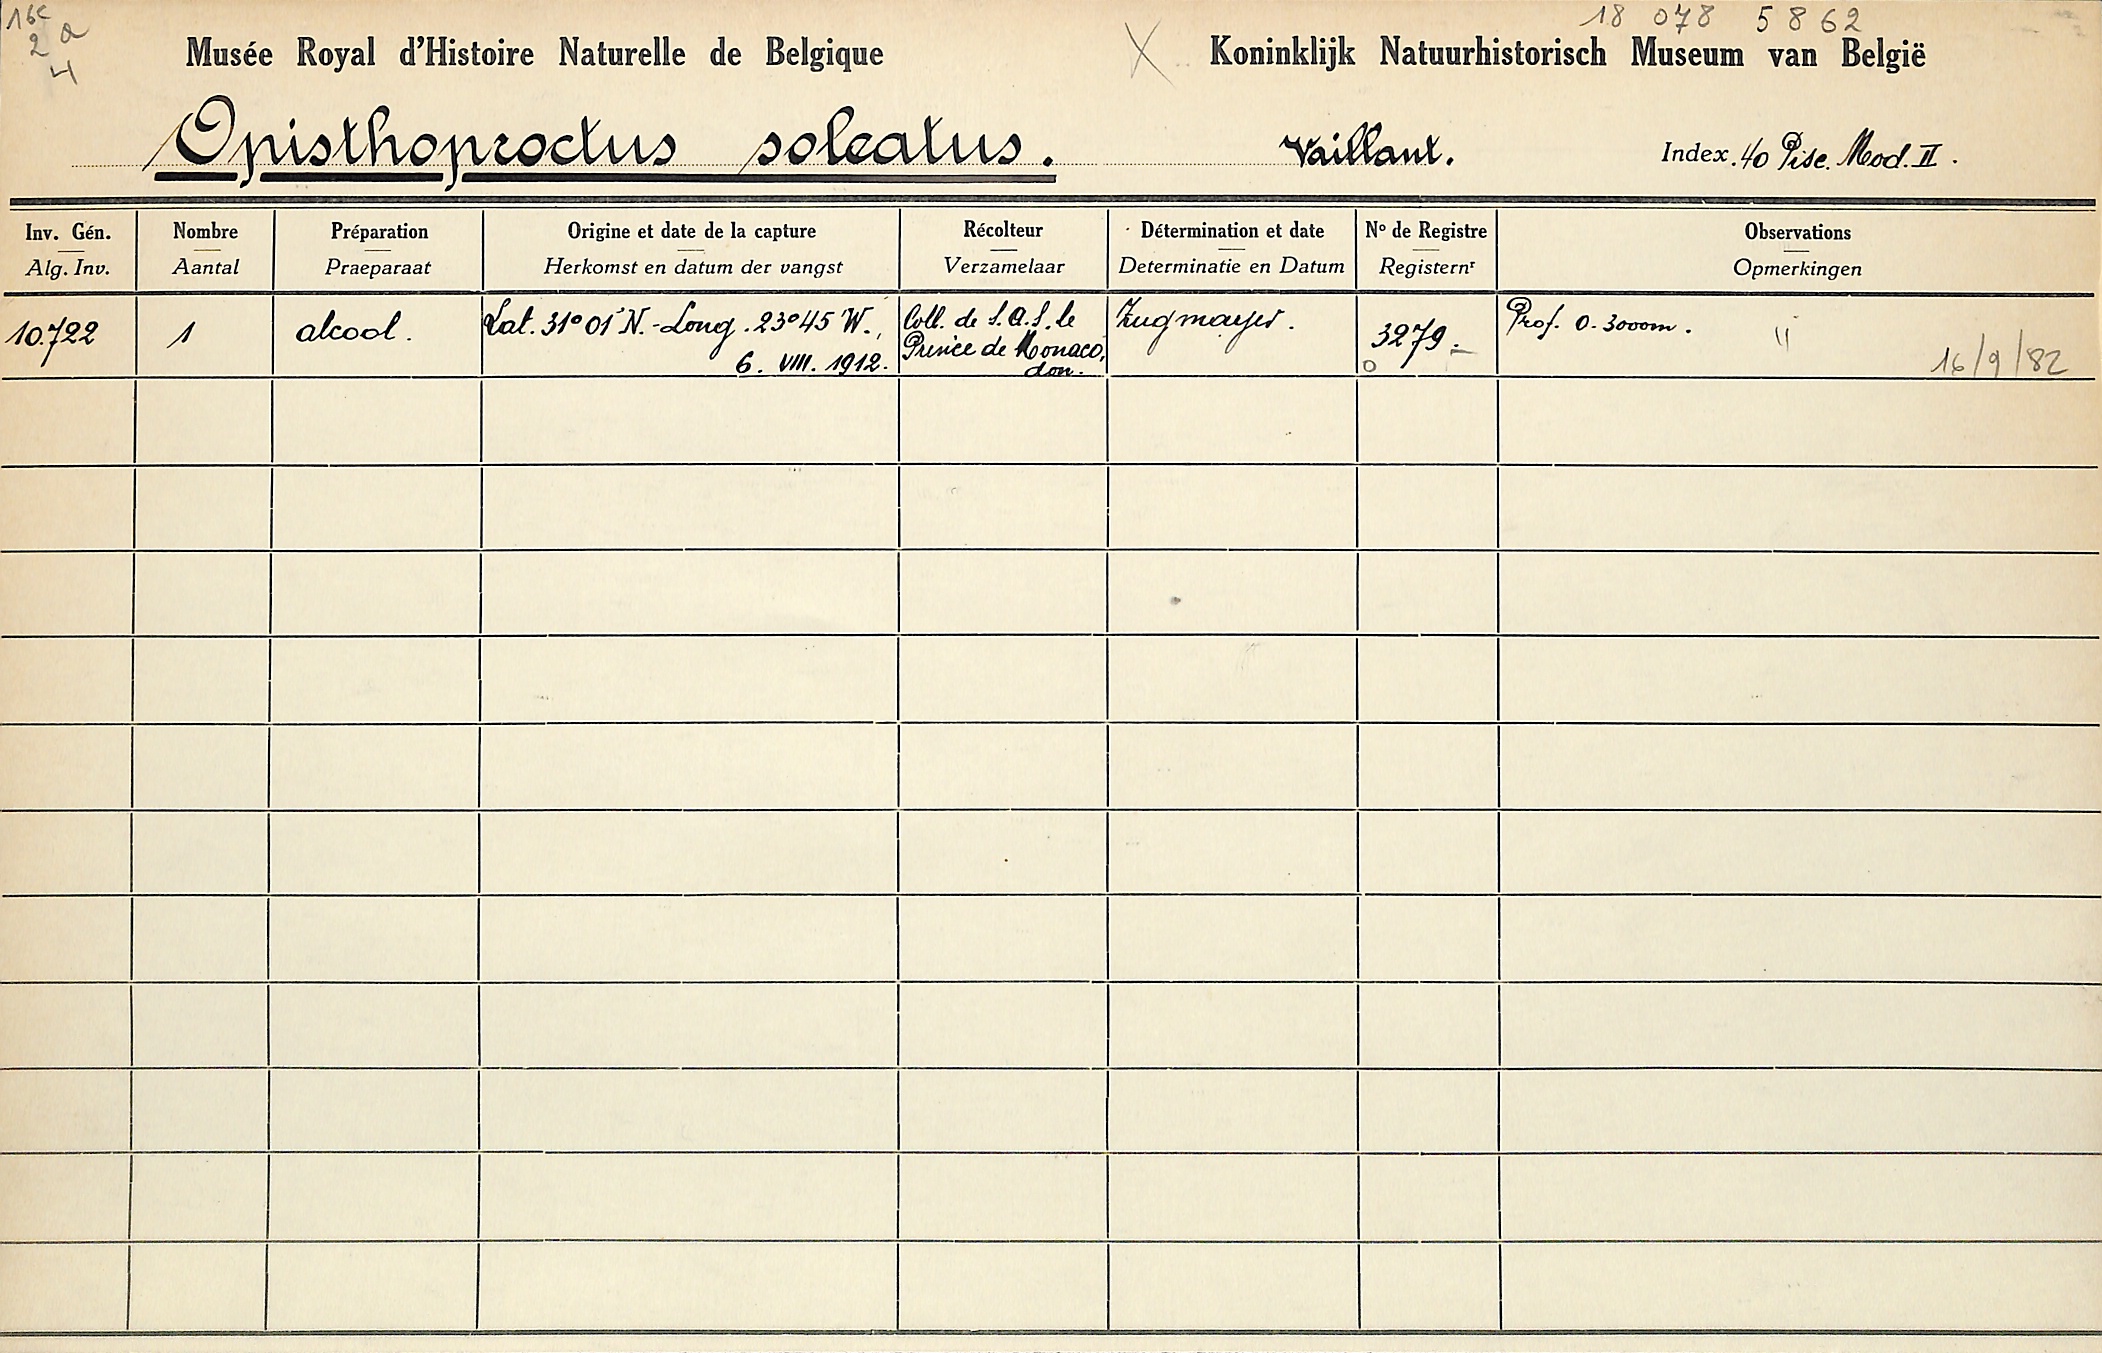 16c
2 a
4
18 078 5862
Musée Royal d'Histoire Naturelle de Belgique X Koninklijk Natuurhistorisch Museum van België
Opisthoproctus soleatus. Vaillant. Index. 40 Pisc. Mod. II.
Inv. Gén. Nombre Préparation Origine et date de la capture Récolteur Détermination et date Nº de Registre Observations
Alg. Inv. Aantal Praeparaat Herkomst en datum der vangst Verzamelaar Determinatie en Datum Registernʳ Opmerkingen
10.722 1 alcool. Lat. 31°01'N.-Long. 23°45'W., Coll. de S.A.S. le Zugmayer. 3279. Prof. 0-3000m. "
6. VIII. 1912. Prince de Monaco, 0 16/9/82
don.